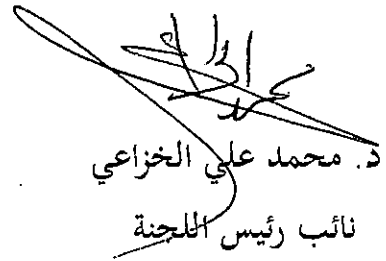 د. محمد علي الخزاعي
نائب رئيس اللجنة